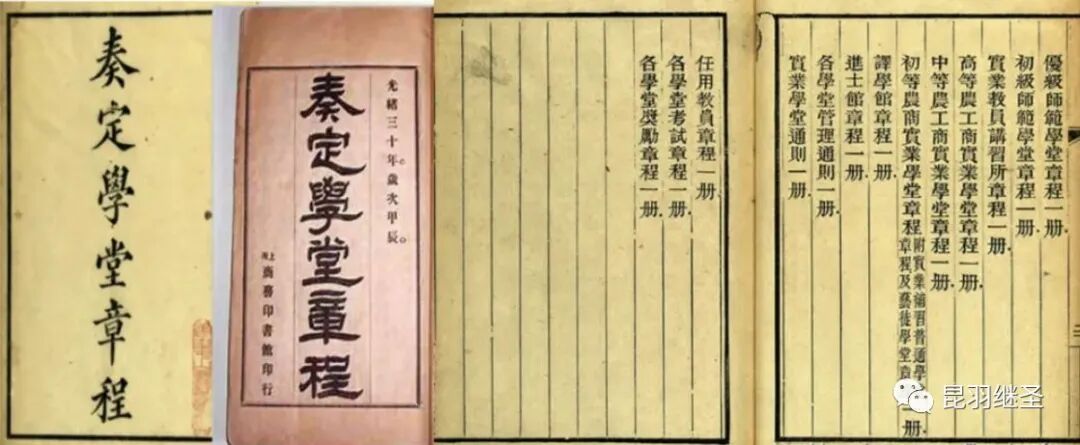 奏定學堂章程
光緒三十年歲次甲辰
奏定學堂章程
上海
商務印書館印行
優級師範學堂章程一册
初級師範學堂章程一册
實業教員講習所章程一册
高等農工商實業學堂章程一册
中等農工商實業學堂章程一册
初等農商實業學堂章程附實業補習普通學
章程及藝徒學堂章
一册
譯學館章程一册
進士館章程一册
各學堂管理通則一册
實業學堂通則一册
任用教員章程一册
各學堂考試章程一册
各學堂獎勵章程一册
昆羽继圣